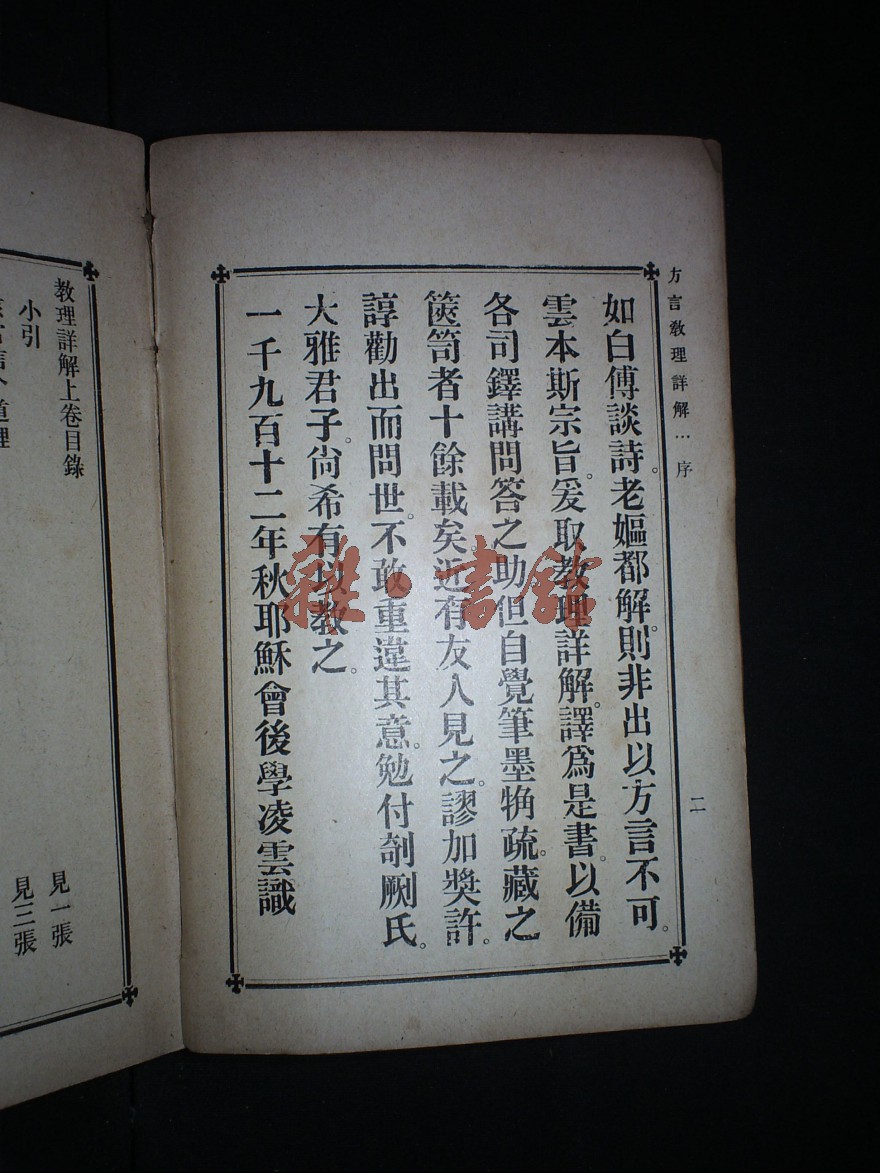 方言教理詳解…序
二
如白傅談詩。老嫗都解。則非出以方言不可。
雲本斯宗旨。爰取教理詳解。譯爲是書。以備
各司鐸講問答之助。但自覺筆墨觕疏。藏之
篋笥者十餘載矣。近有友人見之。謬加獎許。
諄勸出而問世。不敢重違其意。勉付剞劂氏。
大雅君子。尙希有以教之。
一千九百十二年秋耶穌會後學凌雲識
教理詳解上卷目錄
小引
見一張
見三張
雜·書館